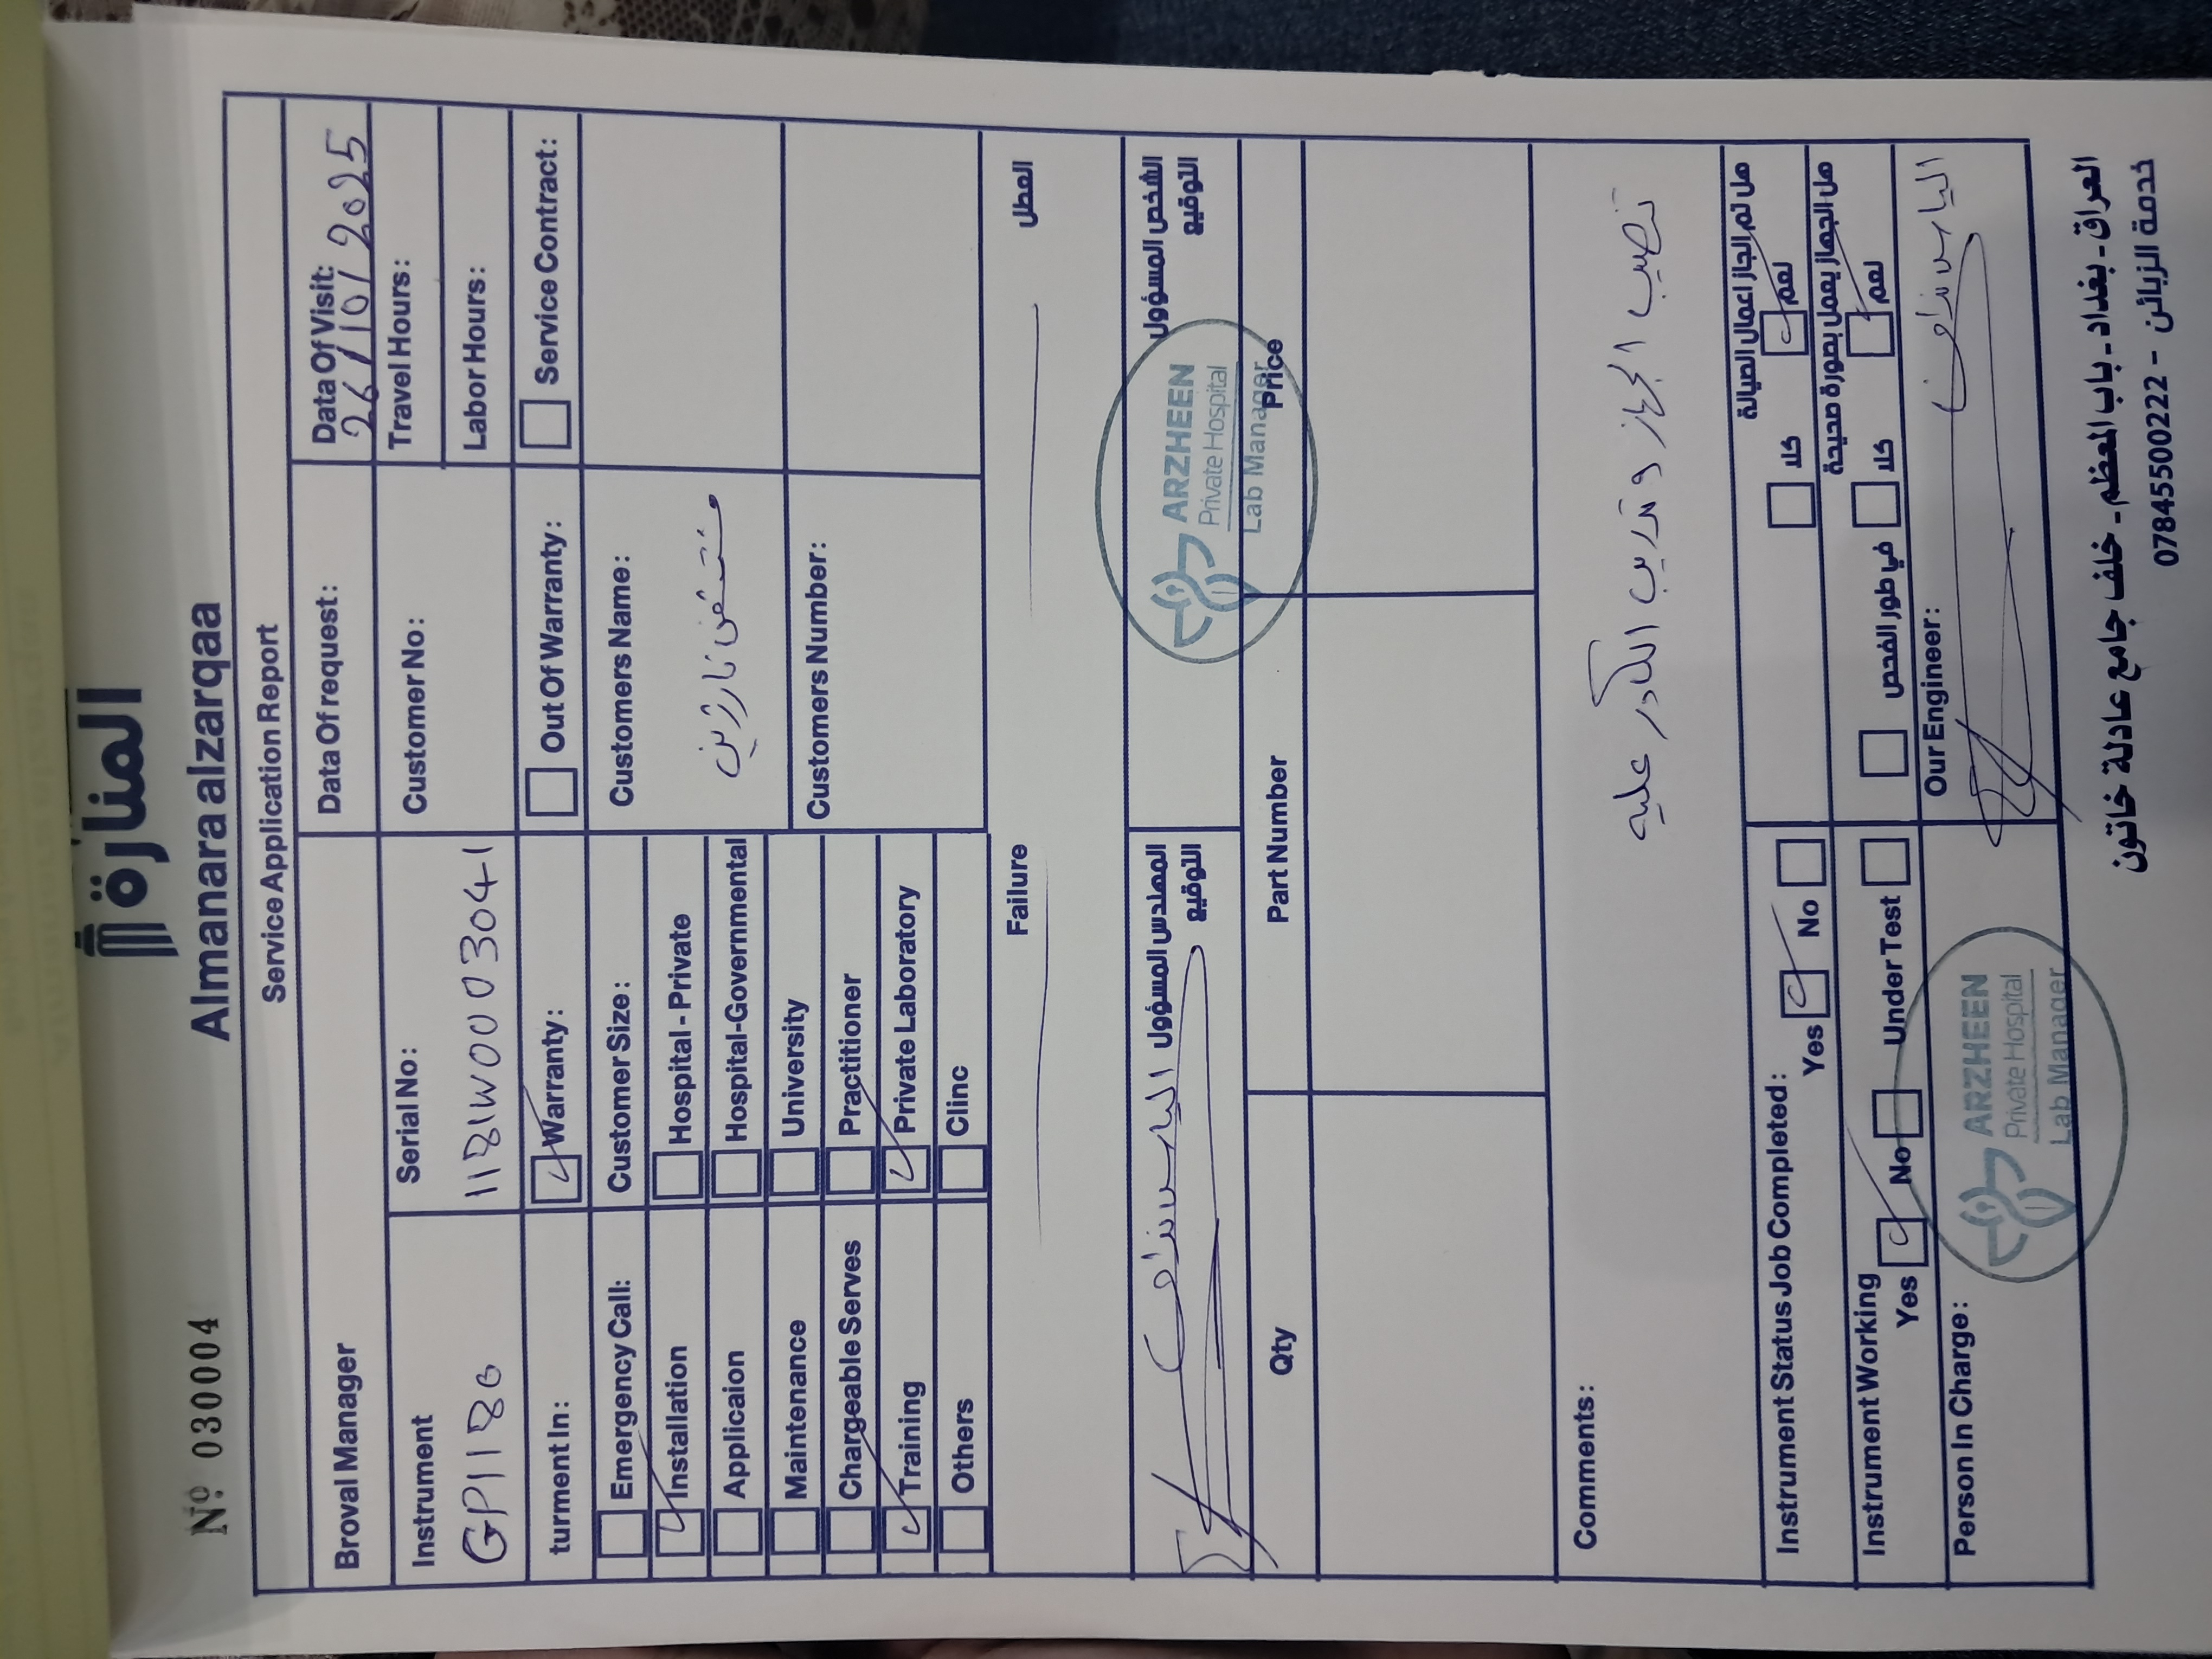 Nº 030004
المنارة
Almanara alzarqaa
Service Application Report
Broval Manager
Data Of request:
Data Of Visit:
26/10/2025
Instrument
GP1180
Serial No:
1181W0003041
Customer No:
Travel Hours:
Labor Hours:
turment In:
Warranty:
Out Of Warranty:
Service Contract:
Emergency Call:
Installation
Applicaion
Maintenance
Chargeable Serves
Training
Others
Customer Size:
Hospital - Private
Hospital-Governmental
University
Practitioner
Private Laboratory
Clinc
Customers Name:
Customers Number:
Failure
العطل
المهندس المسؤول
التوقيع
الشخص المسؤول
التوقيع
ARZHEEN
Private Hospital
Lab Manager
Qty
Part Number
Price
Comments:
تنصيب الجهاز و تدريب الكادر عليه
Instrument Status Job Completed:
Yes
No
هل تم انجاز اعمال الصيانة
كلا
نعم
Instrument Working
Yes
No
Under Test
هل الجهاز يعمل بصورة صحيحة
في طور الفحص
كلا
نعم
Person In Charge:
ARZHEEN
Private Hospital
Lab Manager
Our Engineer:
العراق - بغداد - باب المعظم - خلف جامع عادلة خاتون
خدمة الزبائن - 07845500222